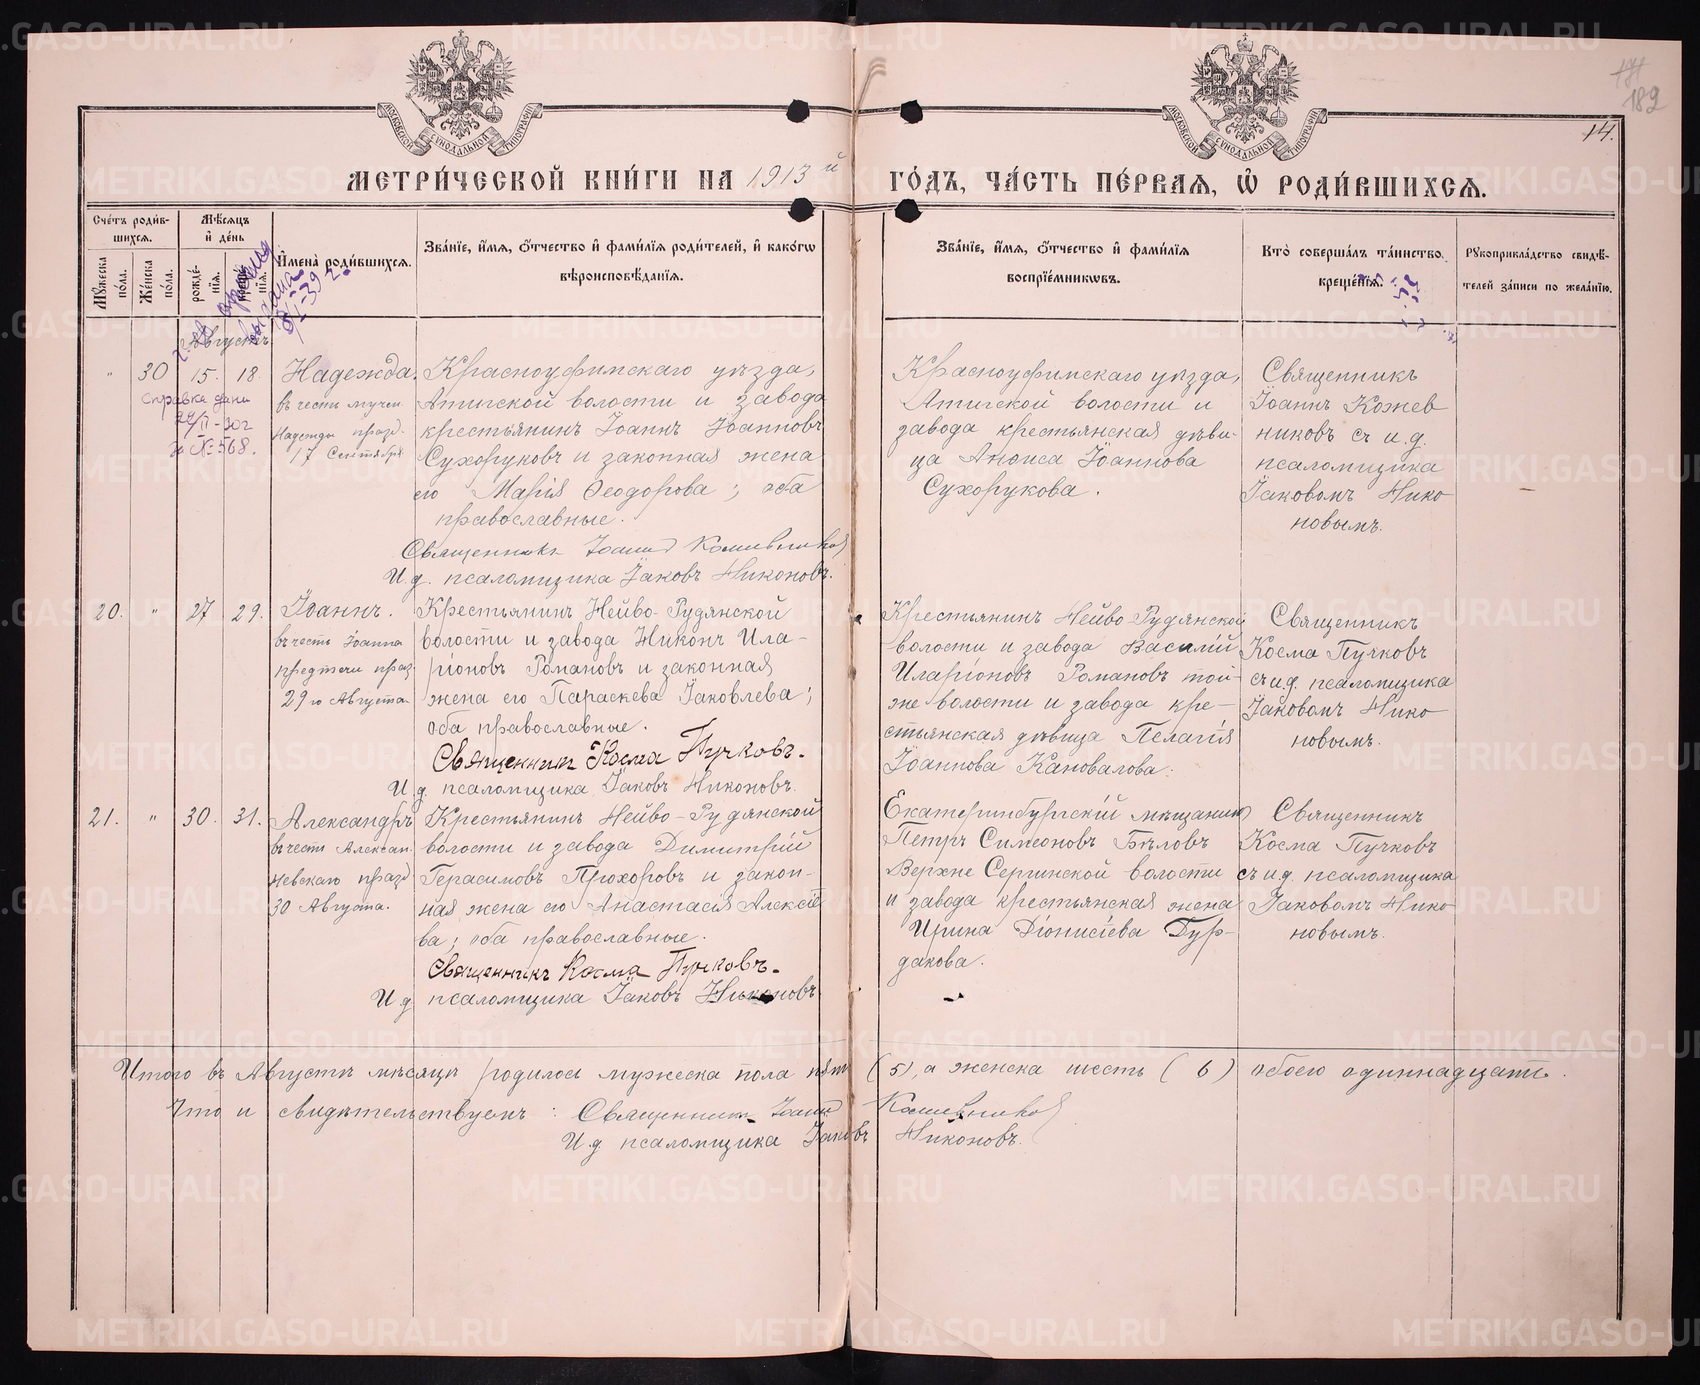 МЕТРИ́ЧЕСКОЙ КНИ́ГИ НА 1913й ГО́ДЪ, ЧА́СТЬ ПЕ́РВАЯ, Ѿ РОДИ́ВШИХСЯ.
182
14.
МОСКОВСКОЙ СѴНОДАЛЬНОЙ ТИПОГРАФІИ
МОСКОВСКОЙ СѴНОДАЛЬНОЙ ТИПОГРАФІИ
Сче́тъ роди́в-
шихся.
Мꙋ́жеска по́ла.
Же́нска по́ла.
Мѣ́сяцъ
и҆ де́нь
рожде́-
нїя.
И҆мена̀ роди́вшихся.
Зва́нїе, и҆́мя, ѻ҆́тчество и҆ фами́лїя роди́телей, и҆ како́гѡ
вѣроисповѣ́данїя.
Зва́нїе, и҆́мя, ѻ҆́тчество и҆ фами́лїя
воспрїе́мникѡвъ.
Кто̀ соверша́лъ та́инство
креще́нїя.
Рꙋкоприкла́дство свидѣ́-
телей за́писи по жела́нїю.
Августъ
" 30 15. 18.
справка дана
29/II-30г
за № 568.
Надежда.
въ честь мучен.
Надежды празд.
17 Сентября
Красноуфимскаго уѣзда,
Атигской волости и завода
крестьянинъ Іоаннъ Іоанновъ
Сухоруковъ и законная жена
его Марія Ѳеодорова; оба
православные.
Священникъ Іоаннъ Кожевниковъ
И. д. псаломщика Іаковъ Никоновъ.
Красноуфимскаго уѣзда,
Атигской волости и
завода крестьянская дѣви-
ца Анфиса Іоаннова
Сухорукова.
Священникъ
Іоаннъ Кожев
никовъ съ и.д.
псаломщика
Іаковомъ Нико
новымъ.
20. " 27 29.
Іоаннъ.
въ честь Іоанна
предтечи праз.
29го Августа.
Крестьянинъ Нейво-Рудянской
волости и завода Никонъ Ила-
ріоновъ Романовъ и законная
жена его Параскева Іаковлева;
оба православные.
Священникъ Косма Пучковъ.
И. д. псаломщика Іаковъ Никоновъ.
Крестьянинъ Нейво-Рудянской
волости и завода Василій
Иларіоновъ Романовъ той-
же волости и завода кре-
стьянская дѣвица Пелагія
Іоаннова Кановалова.
Священникъ
Косма Пучковъ
съ и.д. псаломщика
Іаковомъ Нико
новымъ.
21. " 30. 31.
Александръ
въ честь Алексан.
Невскаго празд.
30 Августа.
Крестьянинъ Нейво-Рудянской
волости и завода Димитрій
Герасимовъ Прохоровъ и закон-
ная жена его Анастасія Алексѣе
ва; оба православные.
Священникъ Косма Пучковъ.
И д. псаломщика Іаковъ Никоновъ
Екатеринбургскій мѣщанинъ
Петръ Симеоновъ Бѣловъ
Верхне Сергинской волости
и завода крестьянская жена
Ирина Діонисіева Дур-
дакова.
Священникъ
Косма Пучковъ
съ и.д. псаломщика
Іаковомъ Нико
новымъ.
Итого въ Августѣ мѣсяцѣ родилось мужеска пола пять (5), а женска шесть (6) обоего одиннадцать.
Что и свидѣтельствуемъ: Священникъ Іоаннъ Кожевниковъ
И д псаломщика Іаковъ Никоновъ.
METRIKI.GASO-URAL.RU